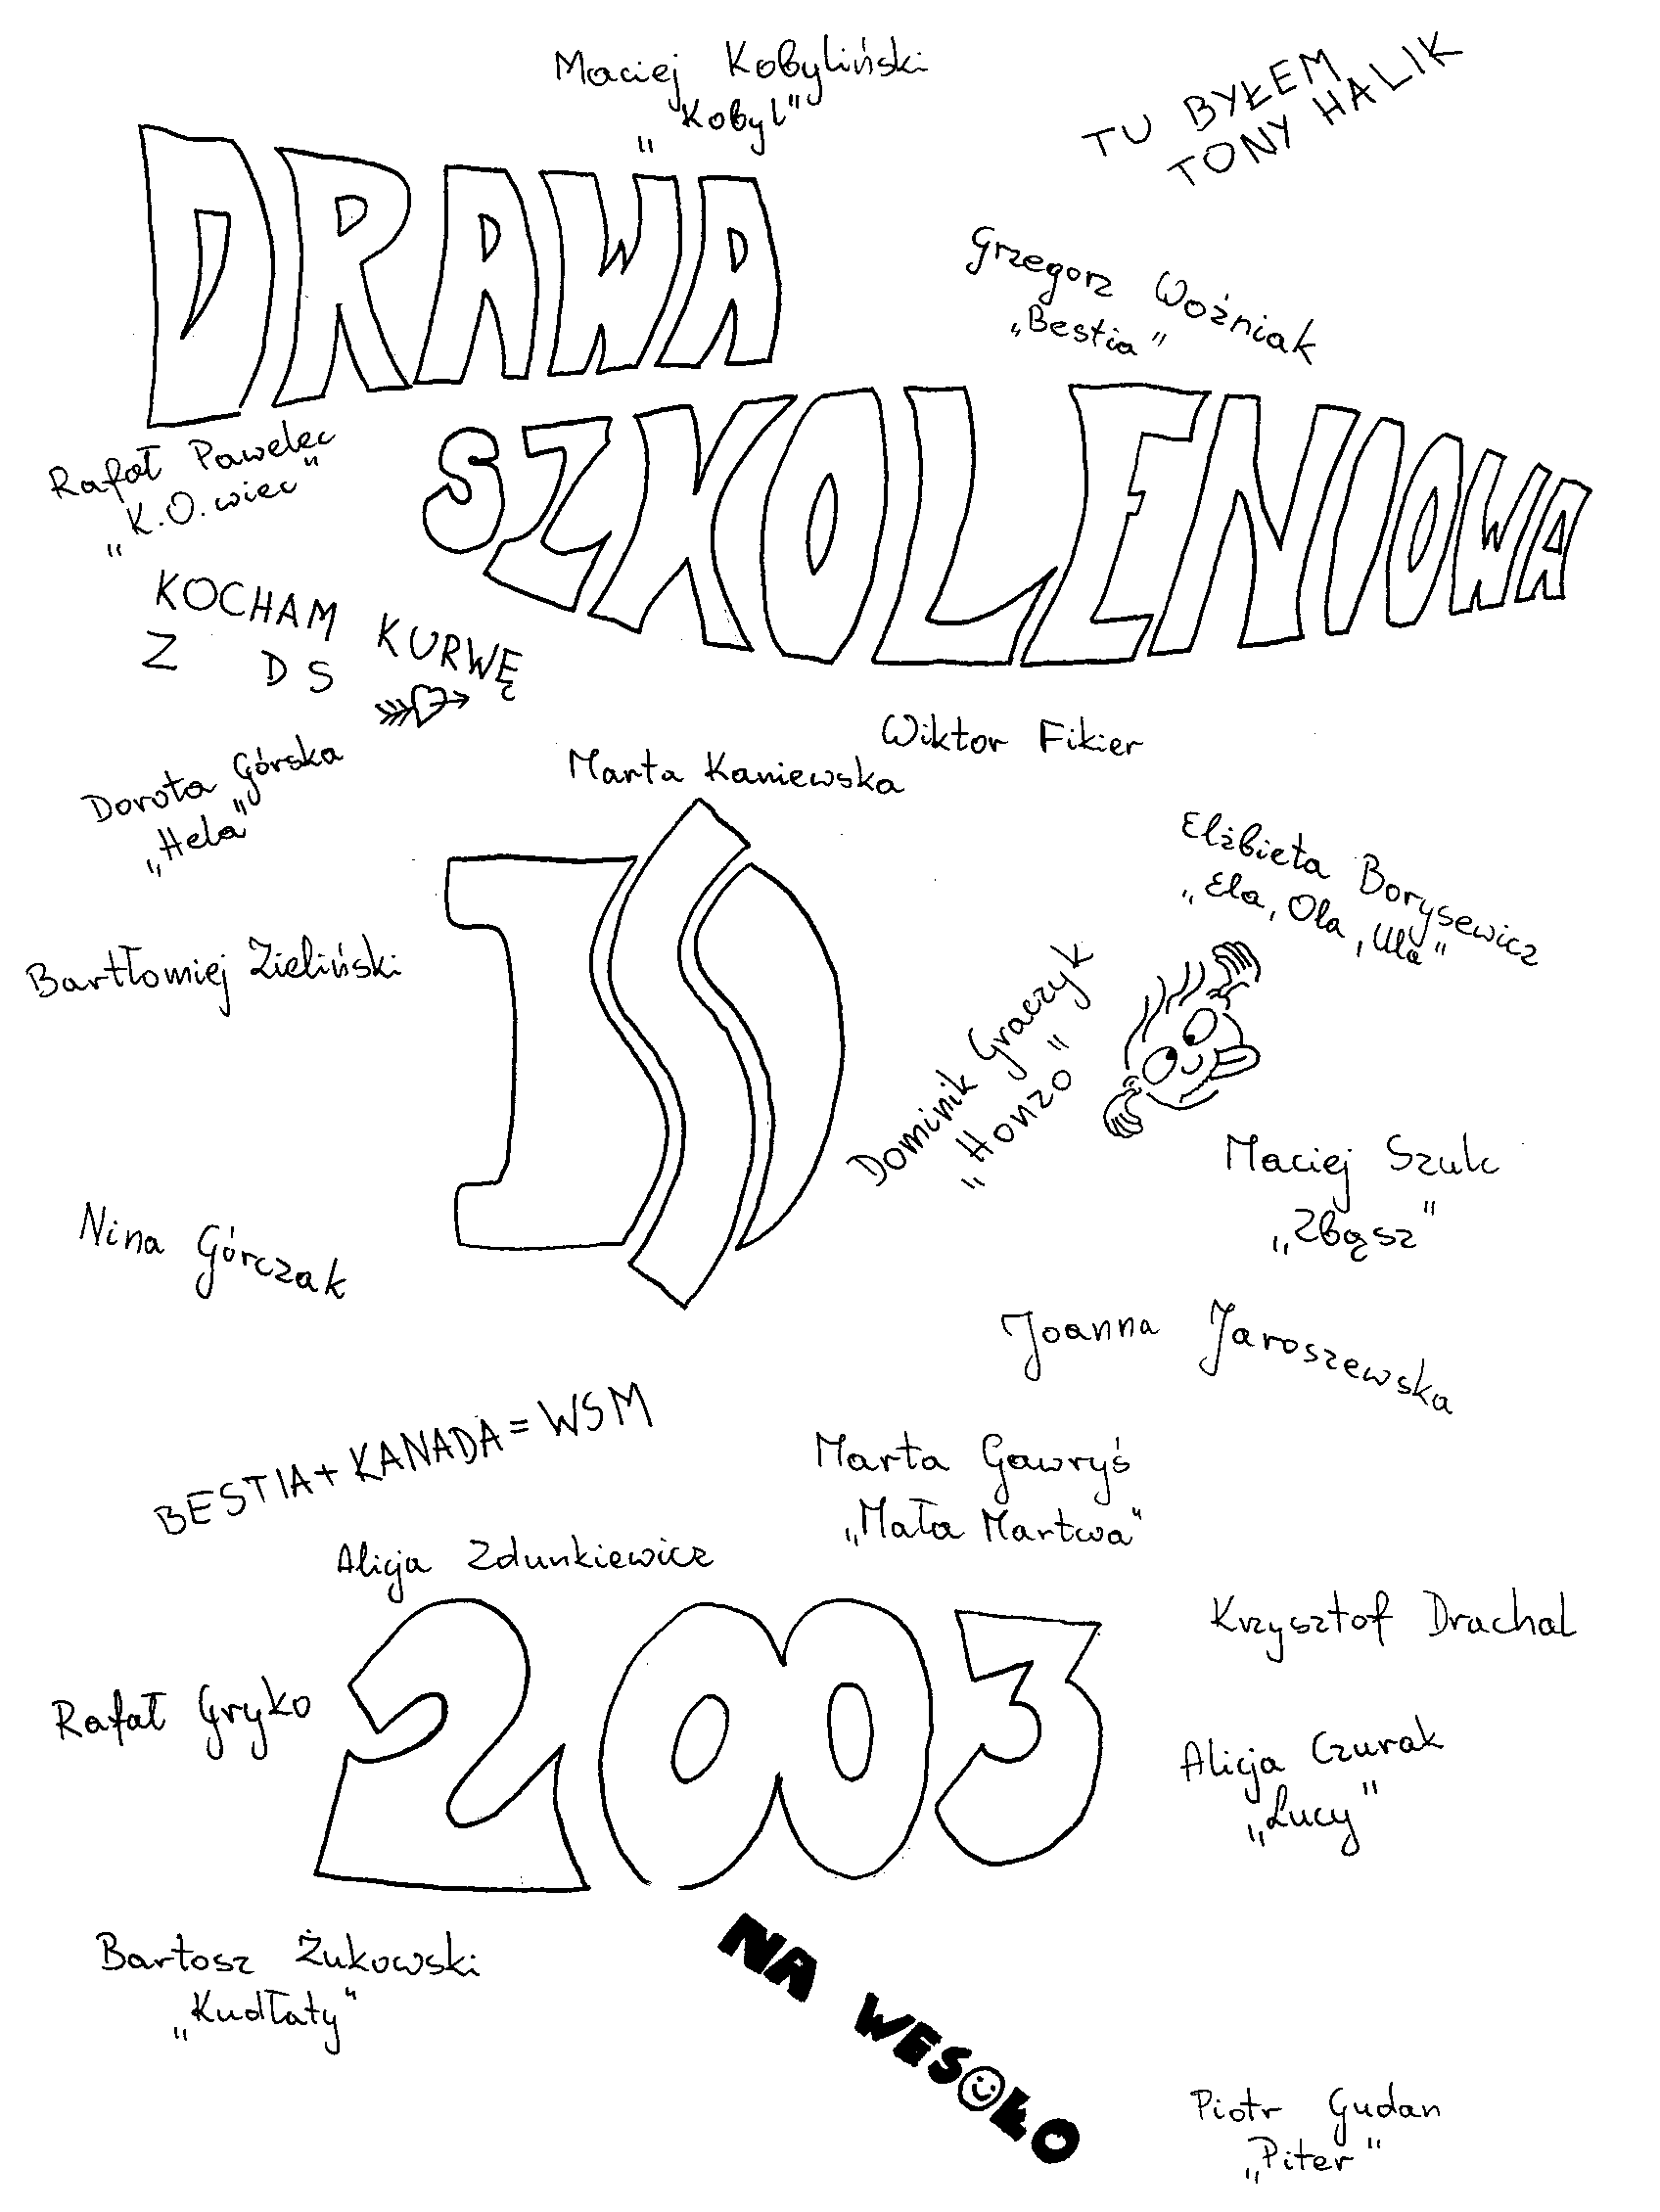 Maciej Kobyliński
„Kobyl"
TU BYŁEM
TONY HALIK
DRAWA
Grzegorz Woźniak
„Bestia"
SZKOLENIOWA
Rafał Pawelec
„K.O.wiec"
KOCHAM KURWĘ
Z DS
Wiktor Fikier
Marta Kaniewska
Dorota Górska
„Hela"
Elżbieta Borysewicz
„Ela, Ola, Ula"
DS
Bartłomiej Zieliński
Dominik Graczyk
„Honzo"
Maciej Szulc
„Zbąsz"
Nina Górczak
Joanna Jaroszewska
BESTIA + KANADA = WSM
Marta Gawryś
„Mała Martwa"
Alicja Zdunkiewicz
2003
Krzysztof Drachal
Rafał Gryko
Alicja Czurak
„Lucy"
Bartosz Żukowski
„Kudłaty"
NA WESOŁO
Piotr Gudan
„Piter"